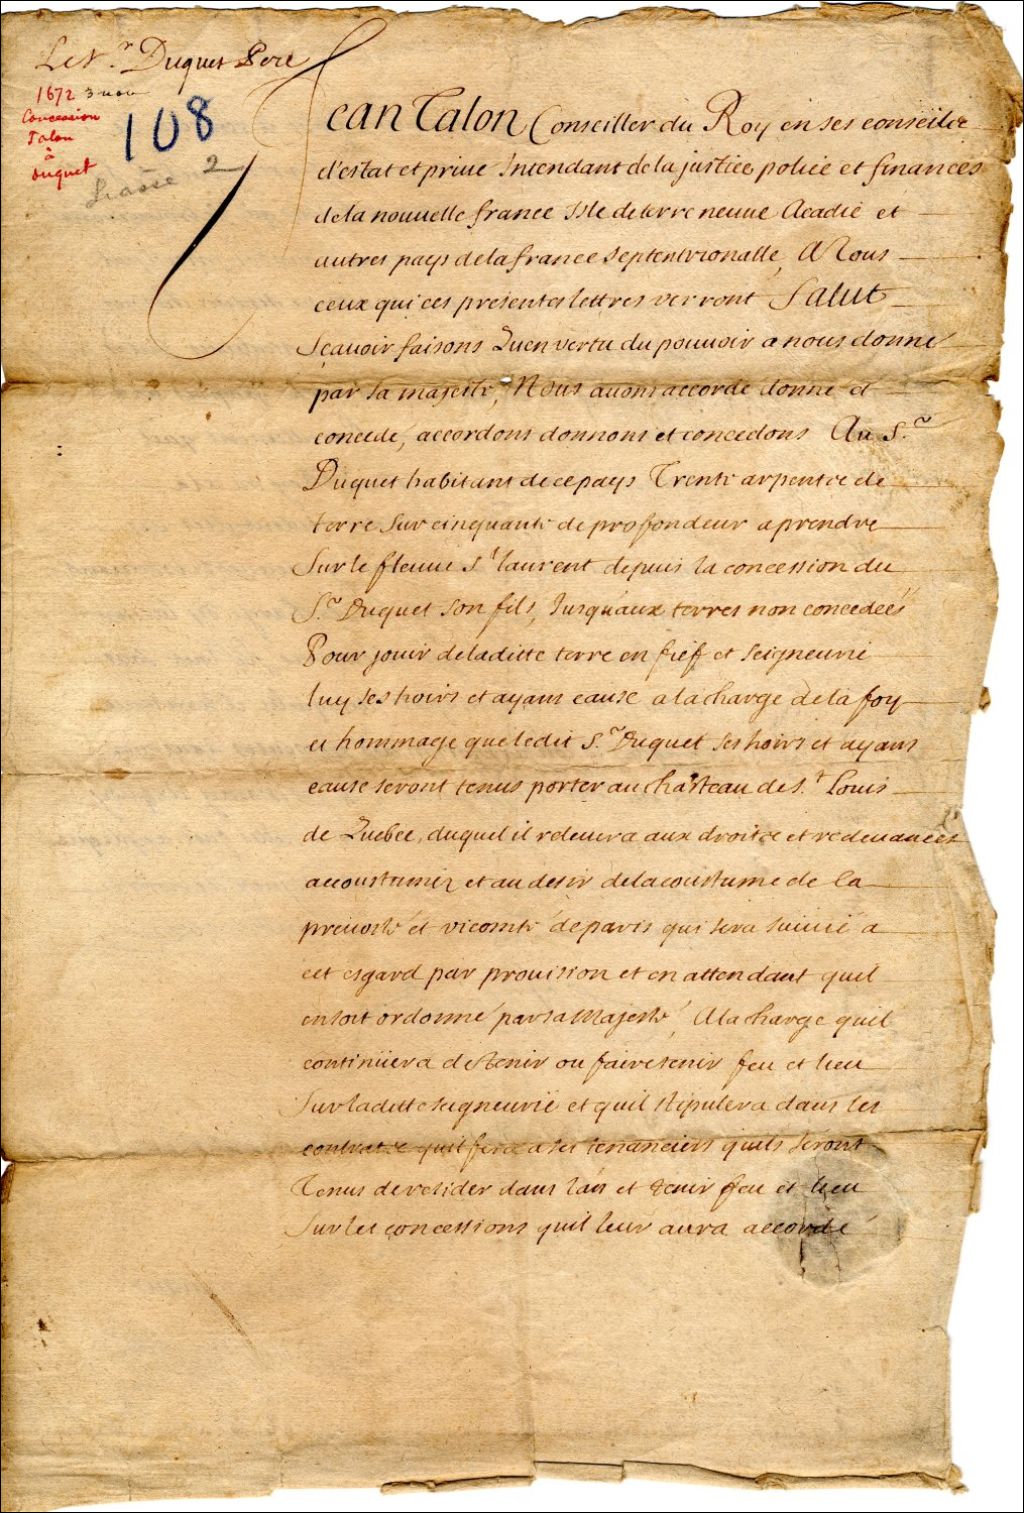 Le Sr. Duquet Pere
1672 3 nov
Concession
Talon
à
Duquet
108
Liasse 2
Jean Talon Conseiller du Roy en ses conseils
d'estat et priué Intendant de la justice police et finances
de la nouuelle france Isle de terre neuue Acadie et
autres pays de la france septentrionalle, A Tous
ceux qui ces presentes lettres verront Salut
Scauoir faisons Quen vertu du pouuoir a nous donné
par sa majesté, Nous auons accordé donné et
concedé, accordons donnons et concedons Au Sr.
Duquet habitant de ce pays Trente arpents de
terre sur cinquante de profondeur a prendre
Sur le fleuue St laurent depuis la concession du
Sr. Duquet son fils, Jusquaux terres non concedées
Pour jouir de laditte terre en fief et seigneurie
luy ses hoirs et ayans cause a la charge de la foy
et hommage que ledit Sr. Duquet ses hoirs et ayans
cause seront tenus porter au chasteau de St. Louis
de Quebec, duquel il releuera aux droits et redeuances
accoustumez et au desir de la coustume de la
preuosté et vicomté de paris qui sera suiuie a
cet esgard par prouision et en attendant quil
en soit ordonné par sa Majesté, A la charge quil
continüera de tenir ou faire tenir feu et lieu
Sur laditte seigneurie et quil stipulera dans les
contrats quil fera a ses tenanciers quils seront
Tenus de resider dans l'an et tenir feu et lieu
Sur les concessions quil leur aura accordé